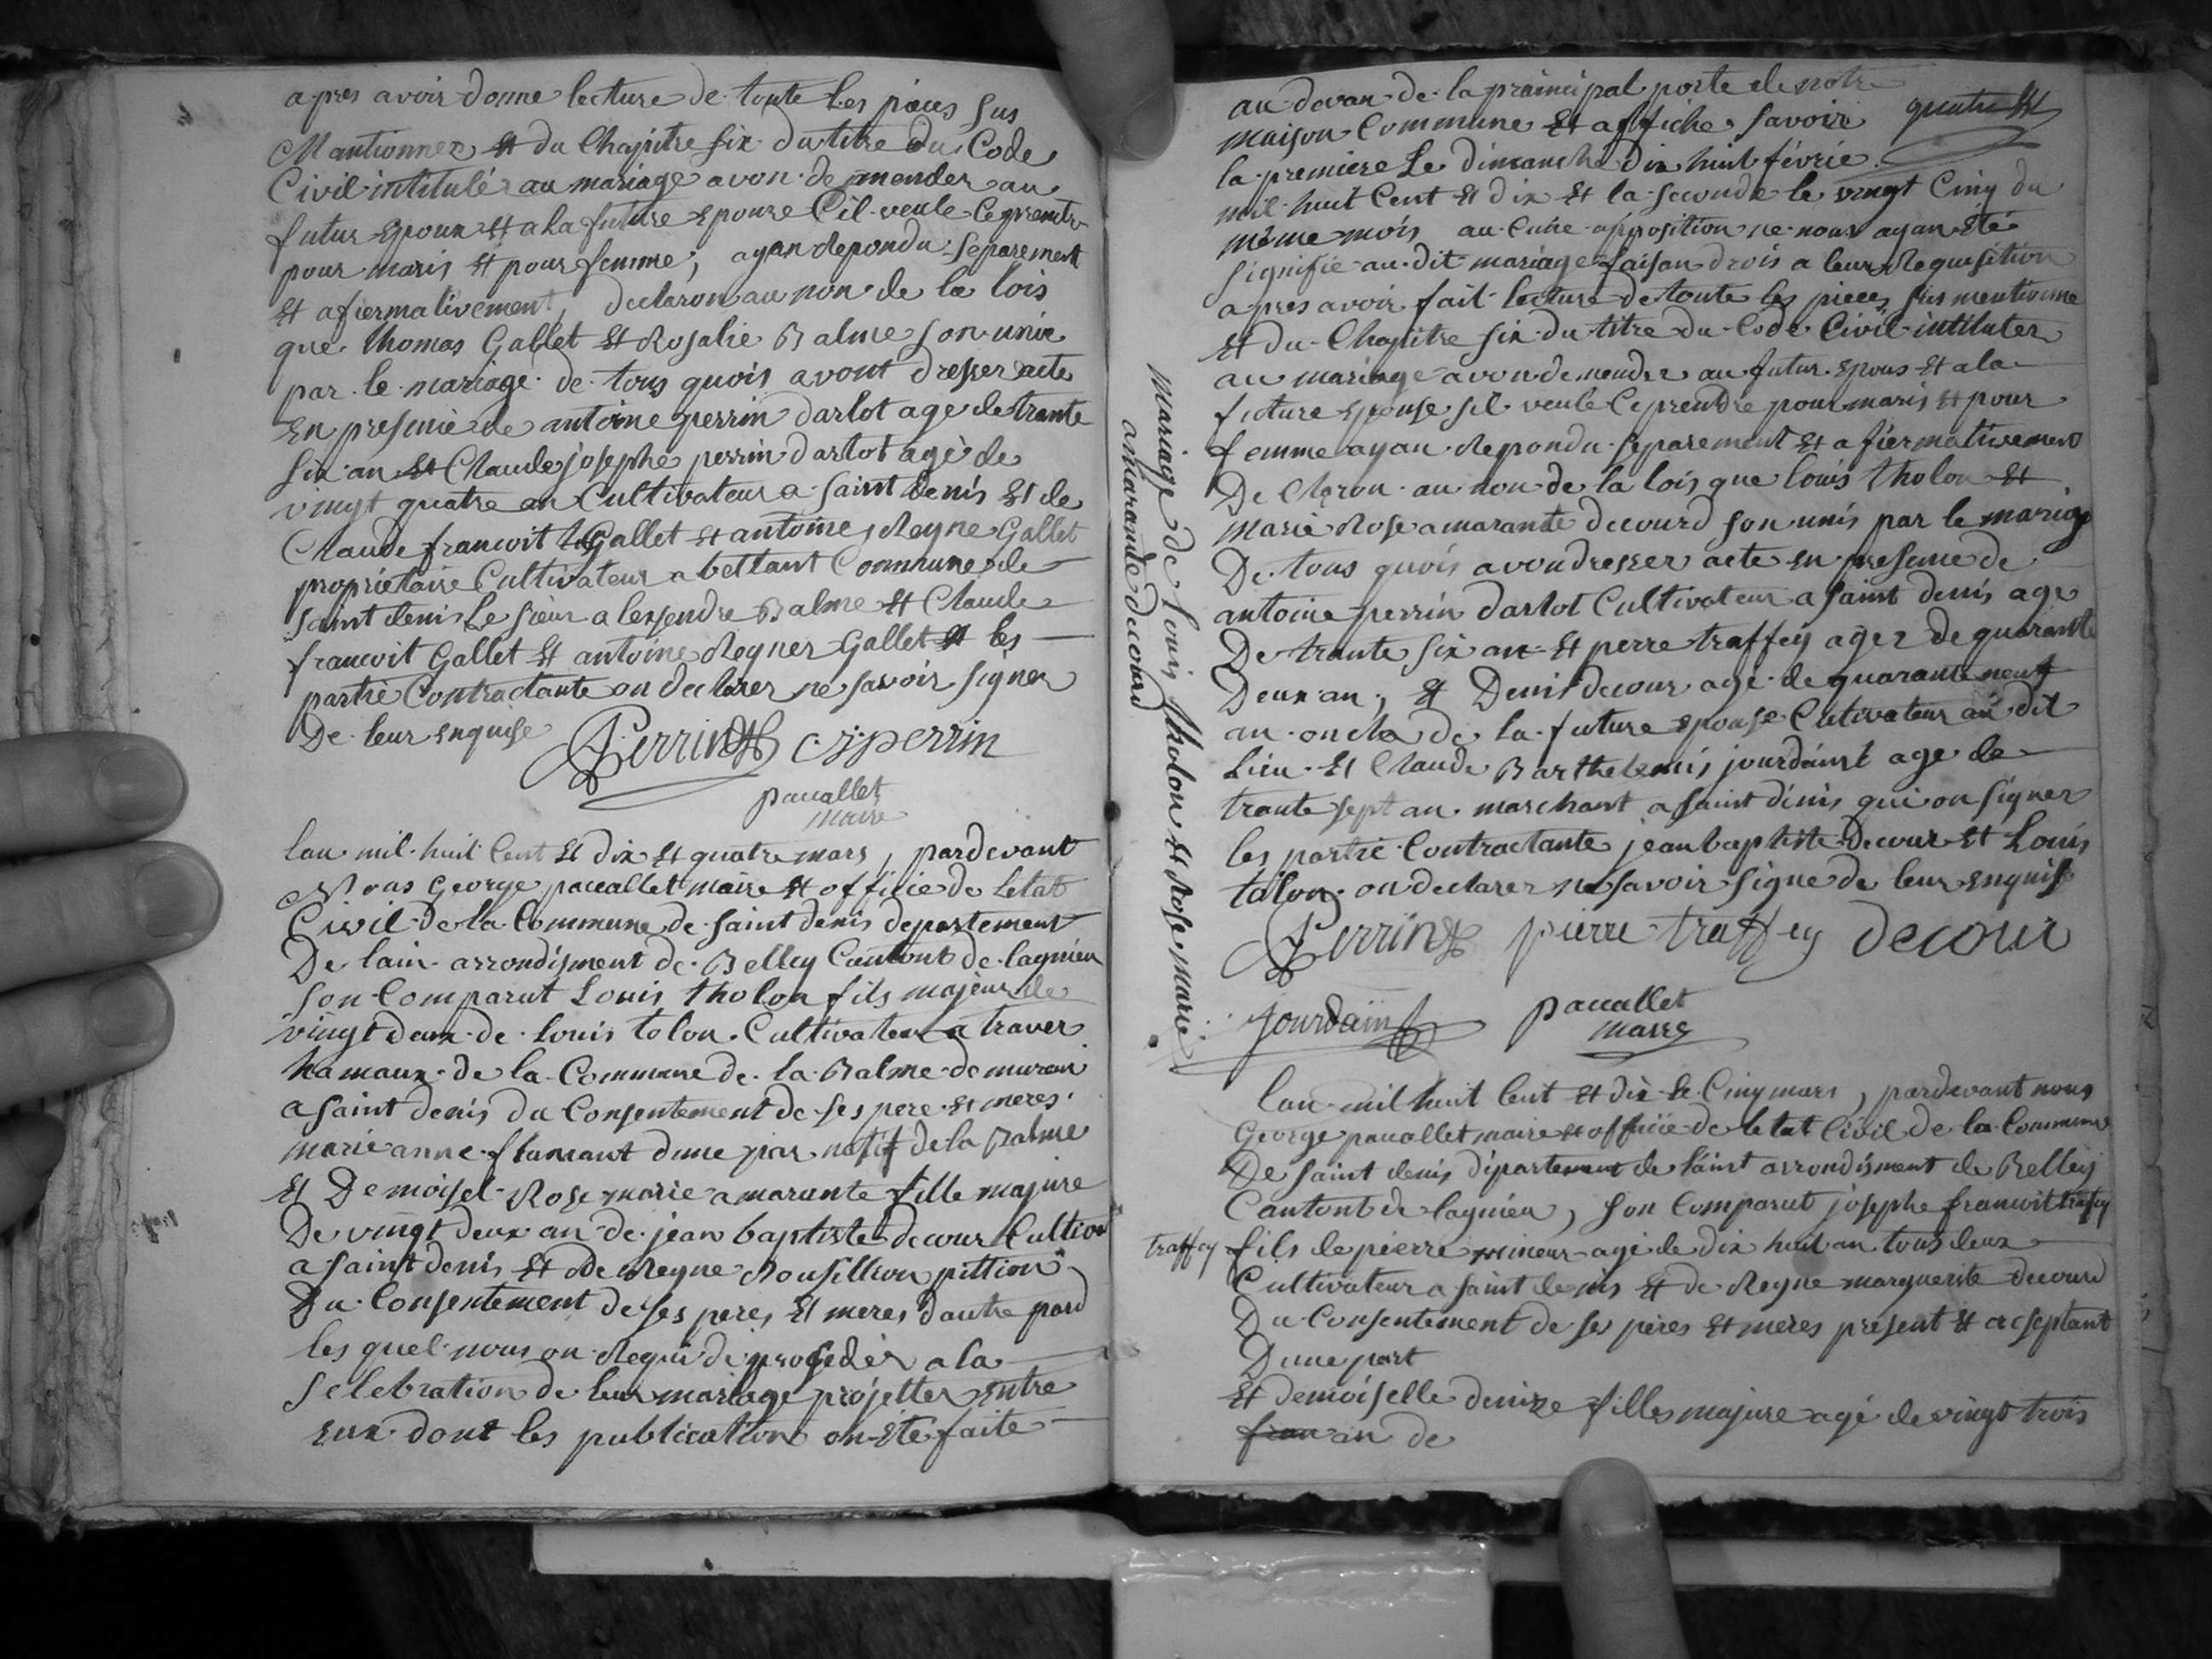 apres avoir donne lecture de toute les pieces sus
Mantionnez et du Chapitre six du titre du Code
Civil intitulé au mariage avon demender au
futur Epoux et a la future Epouse Cil veule Ce prendre
pour maris Et pour femme, ayan repondu Separement
Et afiermativement, declaron au non de la lois
que thomas Gallet Et Rosalie Balme Son unie
par le mariage de tous quois avont dresser acte
En presence de antoine perrin darlot age de trante
six an Et Claude josephe perrin darlot agé de
vingt quatre an Cultivateur a Saint denis Et de
Claude francoit Gallet Et antoine Reyne Gallet
proprietaire Cultivateur a bettant Commune de
Saint denis Le sieur alexsendre Balme Et Claude
francoit Gallet Et antoine Reyner Gallet Et les
partie Contractante on declarer ne savoir signer
De leur enquise Perrin cj perrin
paucallet
maire
lan mil huit Cent Et dix Et quatre mars, pardevant
Nous George paucallet maire Et officie de Letat
Civil de la Commune de Saint denis departement
De lain arrondisment de Belley Cantont de lagnieu
son Comparut Louis tholon fils majeur de
vingt deux de louis tolon Cultivateur a traver
hamaux de la Commune de la Balme demuran
a Saint denis du Consentement de ses pere et meres
marie anne flamant dune par natif de la Balme
Et Demoisel Rose marie amarante fille majure
De vingt deux an de jean baptiste decour Cultiva
a saint denis Et de Reyne Rousillion pittion
Du Consentement de ses peres Et meres dautre pard
les quel nous on Requi de proseder a la
Selebration de leur mariage projetter Entre
eux dont les publication on Eté faite
au devan de la prainsipal porte de notre
maison Commune Et affiche Savoire quatre Et
la premiere Le dimanche dix huit févrie
mil huit Cent Et dix Et la seconde le vingt Cinq du
même mois au Cune opposition ne nous ayan Eté
Signifié au dit mariage faisan drois a leur Requesition
apres avoir fait lecture de toute les pieces sus mentionne
Et du Chapitre six du titre du Code Civil intituler
au mariage avon demender au futur Epous Et a la
future Epouse sil veule Ce prendre pour maris Et pour
femme ayan repondu Separement Et afiermativement
Declaron au non de la lois que louis tholon Et
marie Rose amarante decourd son unis par le mariage
De tous quois avon dresser acte En presence de
antoine perrin darlot Cultivateur a saint denis age
De trante six an Et pierre traffey agez de quarante
Deux an, Et Denis decour agé de quarante neuf
an oncle de la future Epouse Cultivateur au dit
Lieu Et Claude Barthelemis jourdaint age de
trante sept an marchant a saint denis qui on signer
les partie Contractante jean baptiste Decour Et Louis
tolon on declarer ne savoir signe de leur enquise
Perrin pierre traffey decour
Jourdain paucallet
maire
Mariage de Louis tholon Et Rose Marie
amarande decourd
lan mil huit Cent Et dix Le Cinq mars, pardevant nous
George paucallet maire Et officie de letat Civil de la Commune
De saint denis département de laint arrondisment de Belley
Cantont de lagnieu, son Comparut josephe francoit trafey
traffey fils de pierre mineur agé de dix huit an tous deux
Cultivateur a saint denis Et de Reyne marguerite decourd
Du Consentement de ses péres Et meres présent Et acseptant
Dune part
Et demoiselle denize fille majure agé de vingt trois
an de